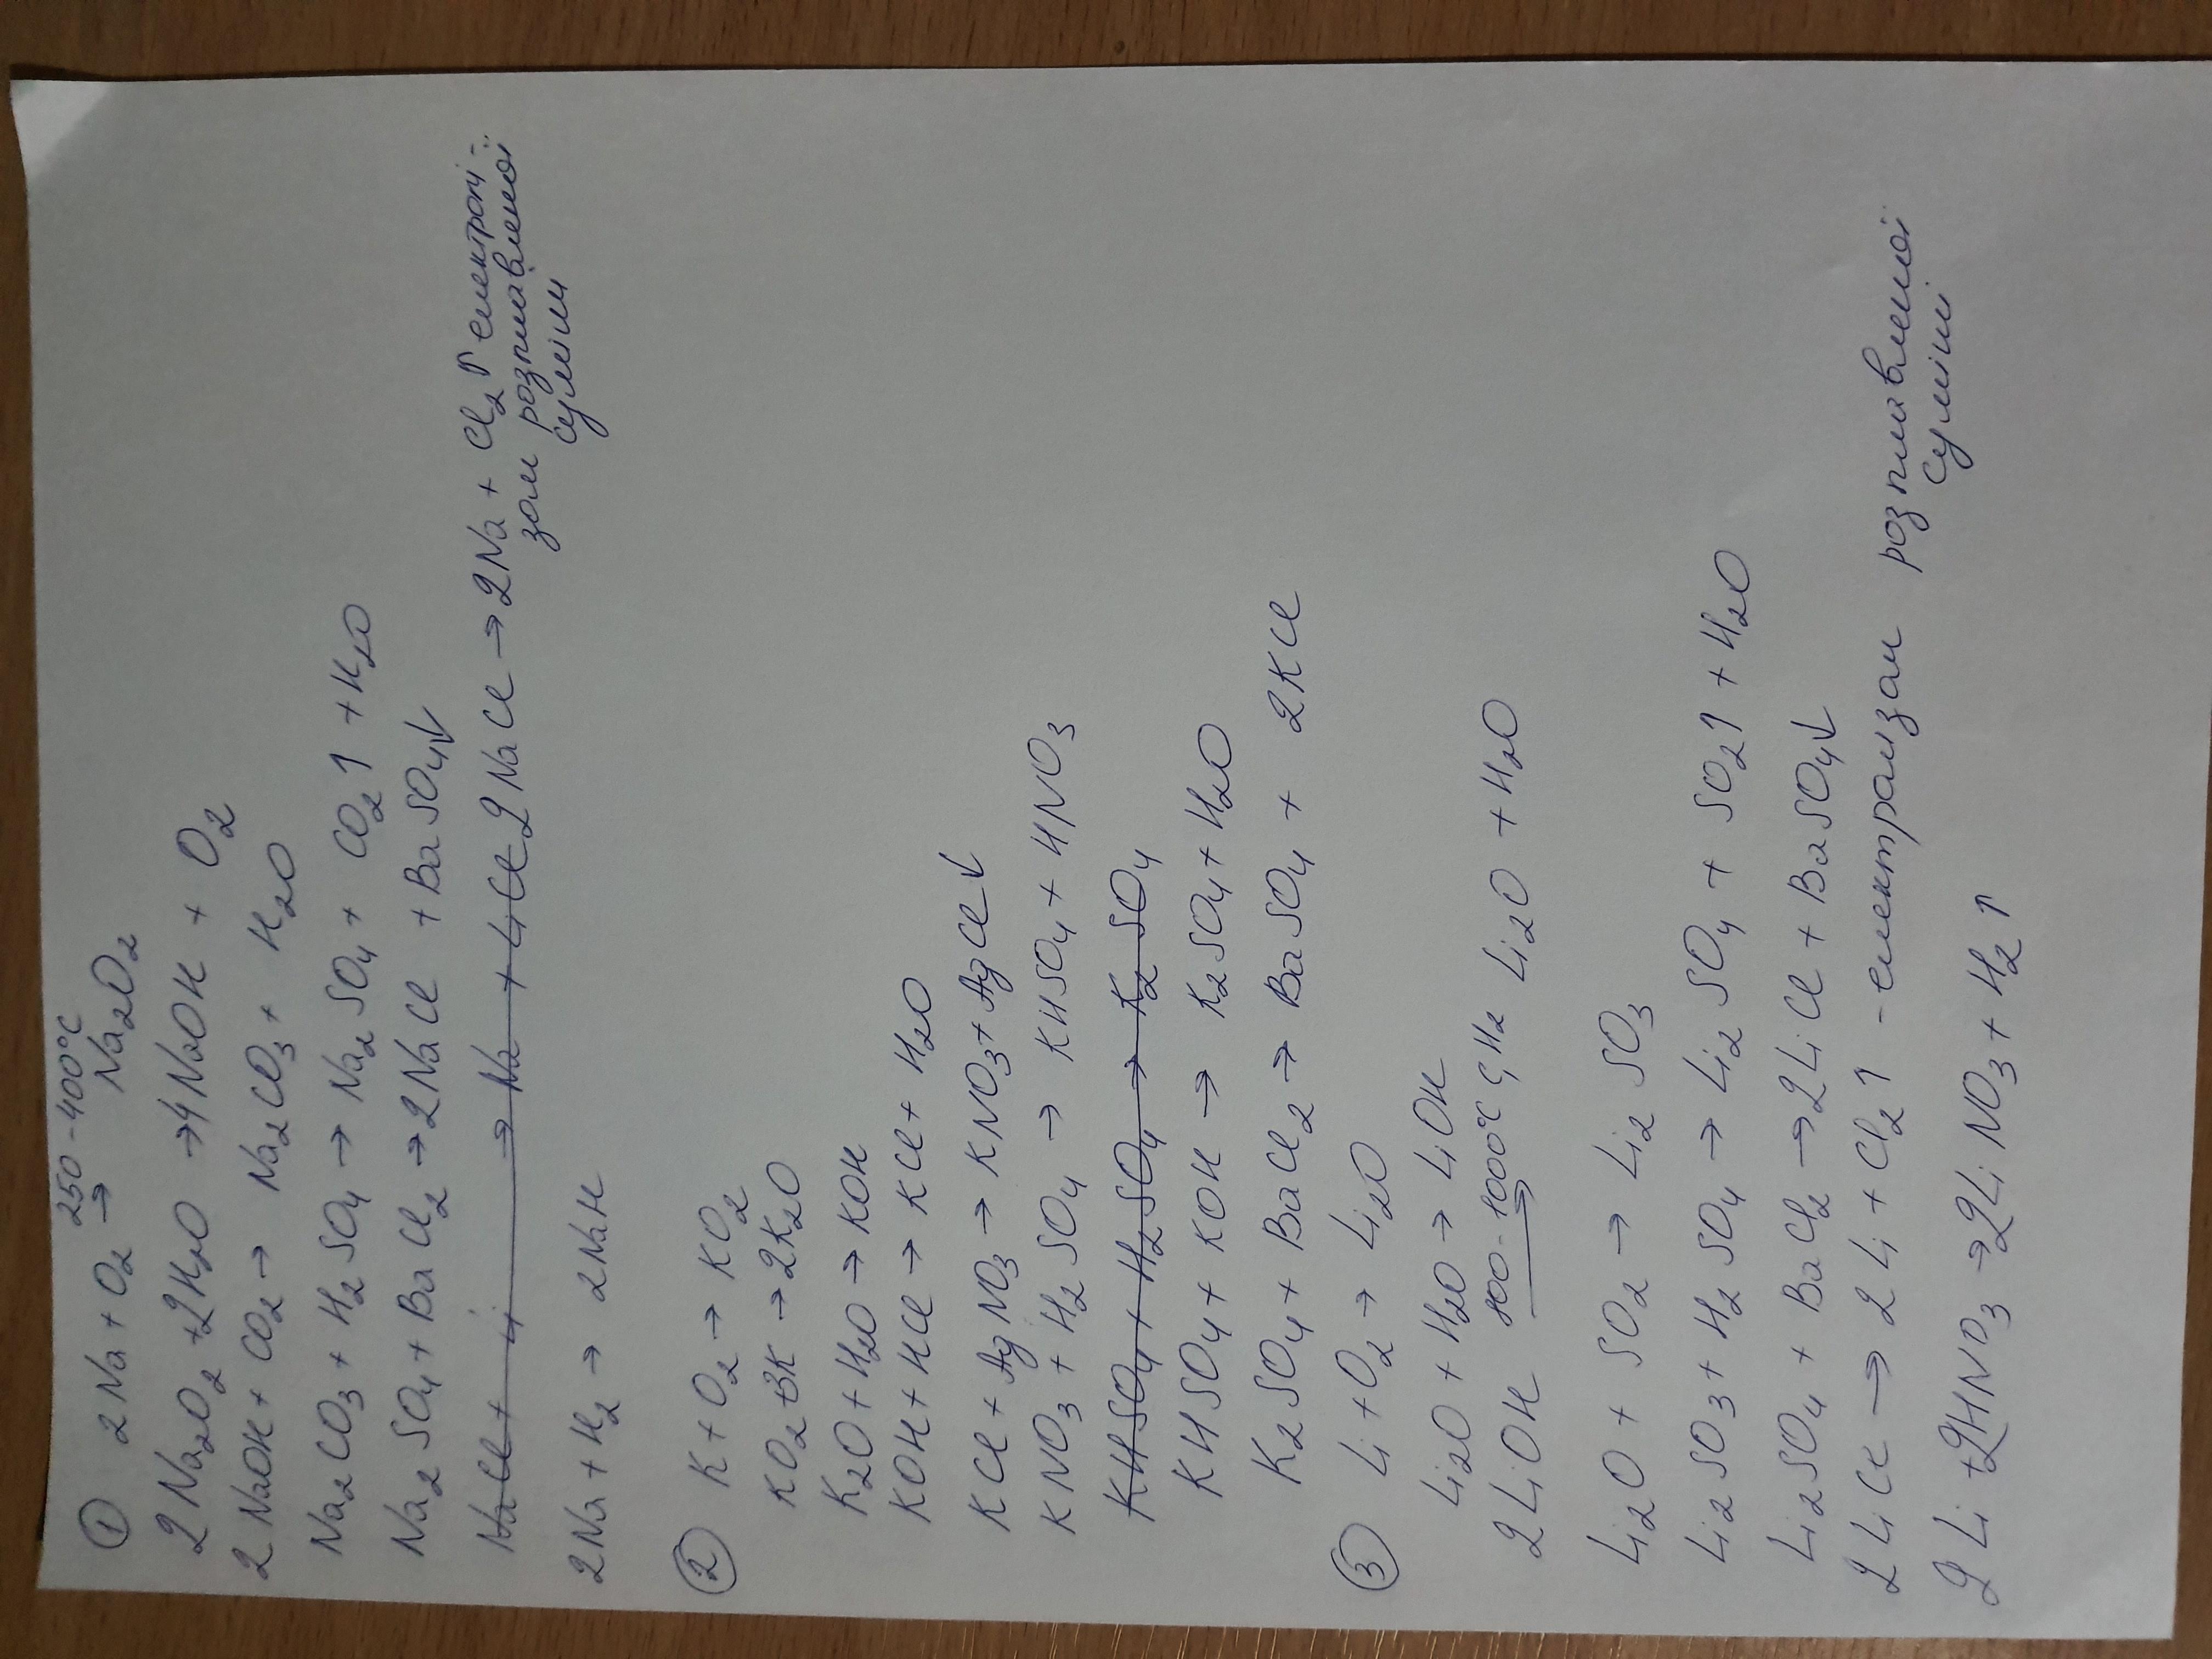 ① 2Na + O₂ 250-400°C → Na₂O₂
2Na₂O₂ + 2H₂O → 4NaOH + O₂
2NaOH + CO₂ → Na₂CO₃ + H₂O
Na₂CO₃ + H₂SO₄ → Na₂SO₄ + CO₂↑ + H₂O
Na₂SO₄ + BaCl₂ → 2NaCl + BaSO₄↓
2NaCl → 2Na + Cl₂↑ електролі-
зом розплавленої
суміші
2Na + H₂ → 2NaH
② K + O₂ → KO₂
KO₂ + 3K → 2K₂O
K₂O + H₂O → KOH
KOH + HCl → KCl + H₂O
KCl + AgNO₃ → KNO₃ + AgCl↓
KNO₃ + H₂SO₄ → KHSO₄ + HNO₃
KHSO₄ + H₂SO₄ → K₂SO₄
KHSO₄ + KOH → K₂SO₄ + H₂O
K₂SO₄ + BaCl₂ → BaSO₄ + 2KCl
③ Li + O₂ → Li₂O
Li₂O + H₂O → LiOH
2LiOH 800-1000°C, H₂ → Li₂O + H₂O
Li₂O + SO₂ → Li₂SO₃
Li₂SO₃ + H₂SO₄ → Li₂SO₄ + SO₂↑ + H₂O
Li₂SO₄ + BaCl₂ → 2LiCl + BaSO₄↓
2LiCl → 2Li + Cl₂↑ - електролізом розплавленої
суміші
2Li + 2HNO₃ → 2LiNO₃ + H₂↑